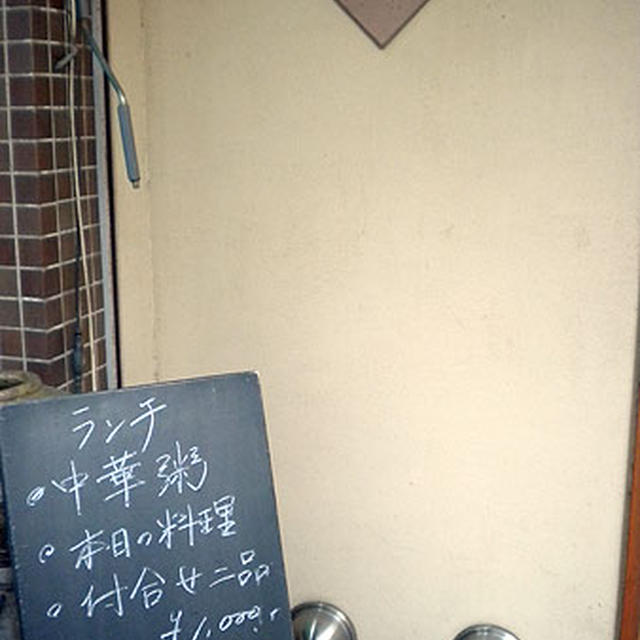 ランチ
中華粥
本日の料理
付合せ二品
¥1,000.-